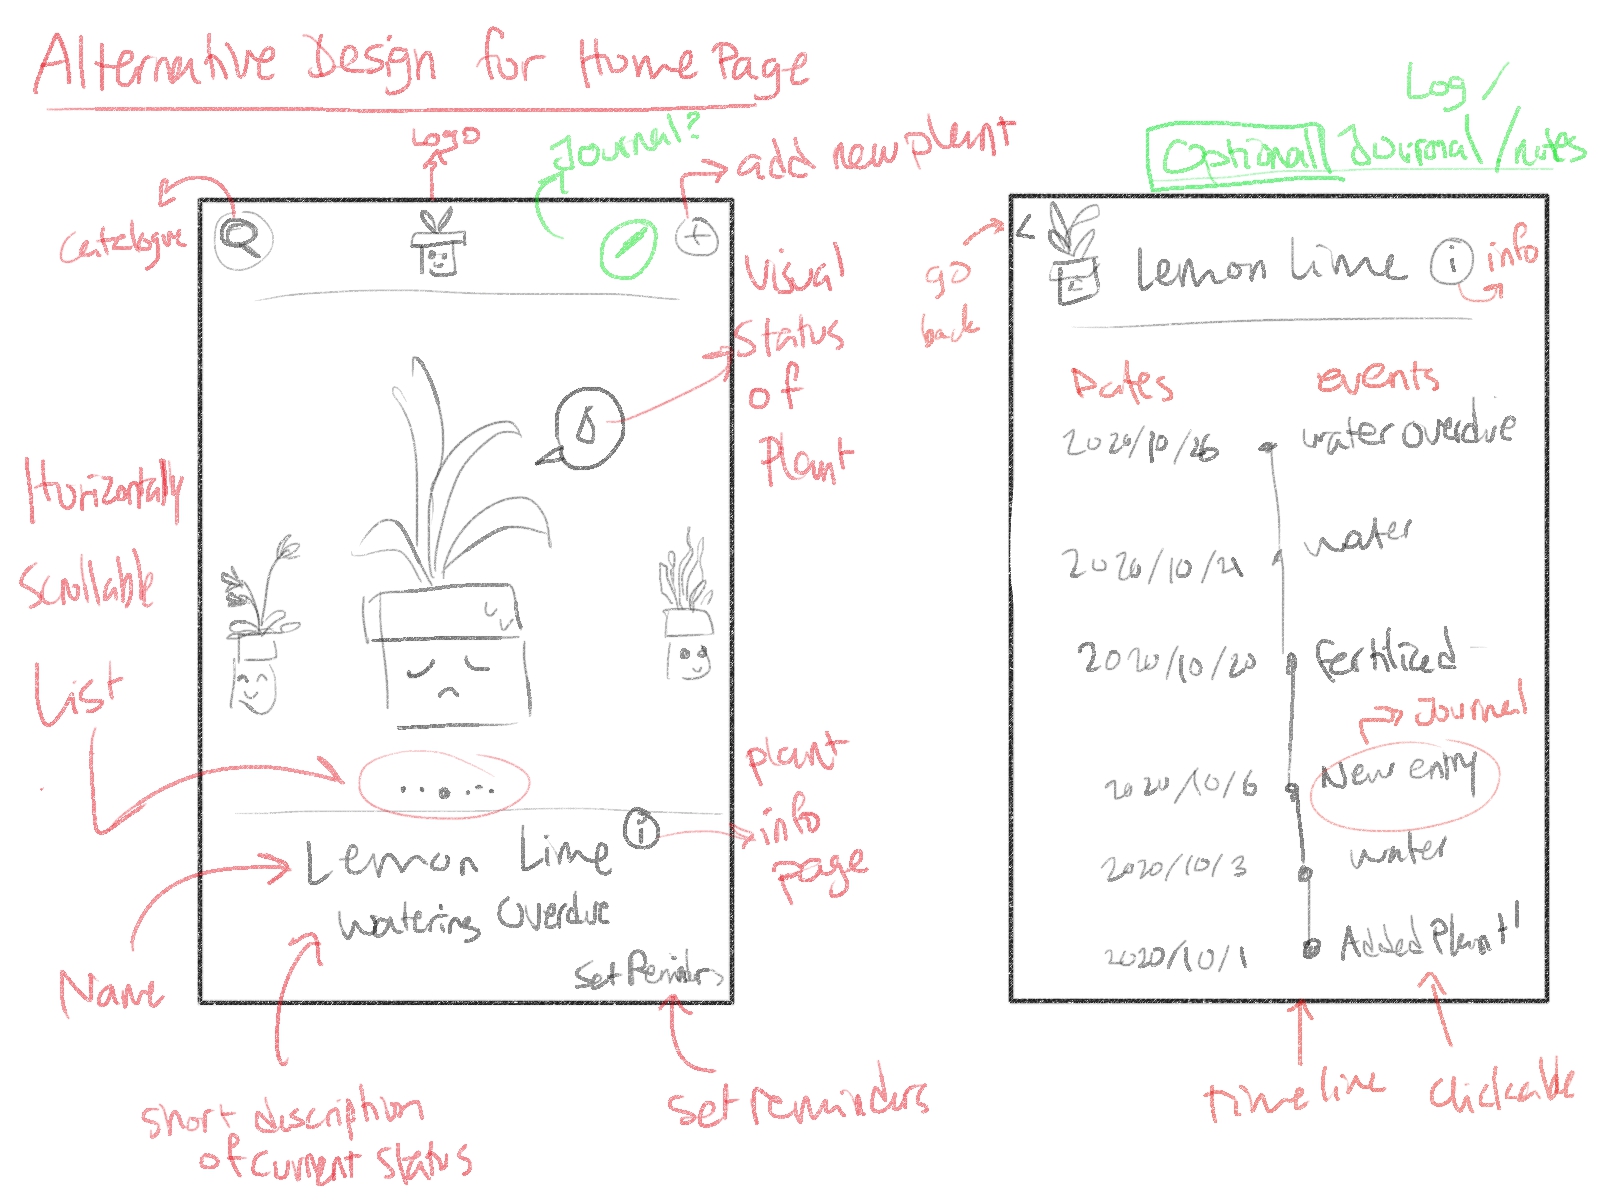 Alternative Design for Home Page
Logo
Journal?
add new plant
Catalogue
Visual
status
of
Plant
Horizontally
Scrollable
List
plant
info
page
Lemon Lime i
Watering Overdue
Set Reminders
Name
short description
of current status
set reminders
Log /
Optional Journal / notes
go
back
< Lemon Lime i
info
Dates events
2020/10/26 water overdue
2020/10/21 water
2020/10/20 fertilized
Journal
2020/10/6 New entry
2020/10/3 water
2020/10/1 Added Plant!
timeline
clickable